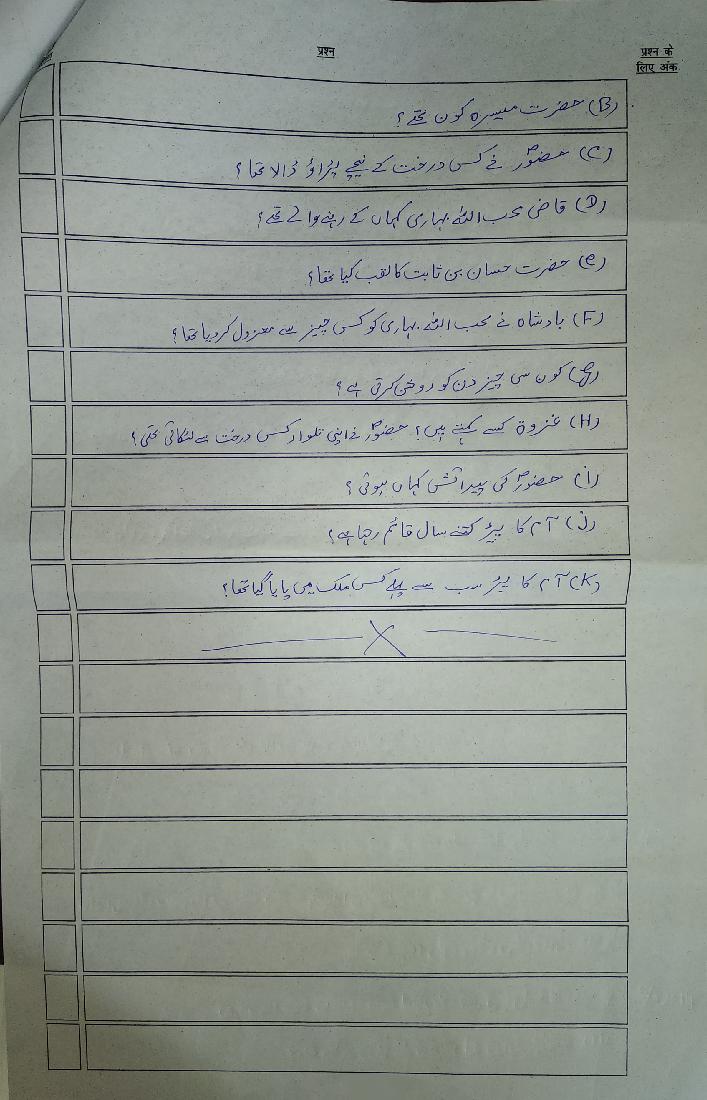 प्रश्न
प्रश्न के
लिए अंक
(B) حضرت میسرہ کون تھے؟
(C) حضورؐ نے کس درخت کے نیچے پڑاؤ ڈالا تھا؟
(D) قاضی محب اللہ بہاری کہاں کے رہنے والے تھے؟
(e) حضرت حسان بن ثابت کا لقب کیا تھا؟
(F) بادشاہ نے محب اللہ بہاری کو کس چیز سے معزول کر دیا تھا؟
(G) کون سی چیز دن کو روشن کرتی ہے؟
(H) غزوة کسے کہتے ہیں؟ حضورؐ نے اپنی تلوار کس درخت سے لٹکائی تھی؟
(i) حضورؐ کی پیدائش کہاں ہوئی؟
(J) آم کا پیڑ کتنے سال قائم رہتا ہے؟
(K) آم کا پیڑ سب سے پہلے کس ملک میں پایا گیا تھا؟